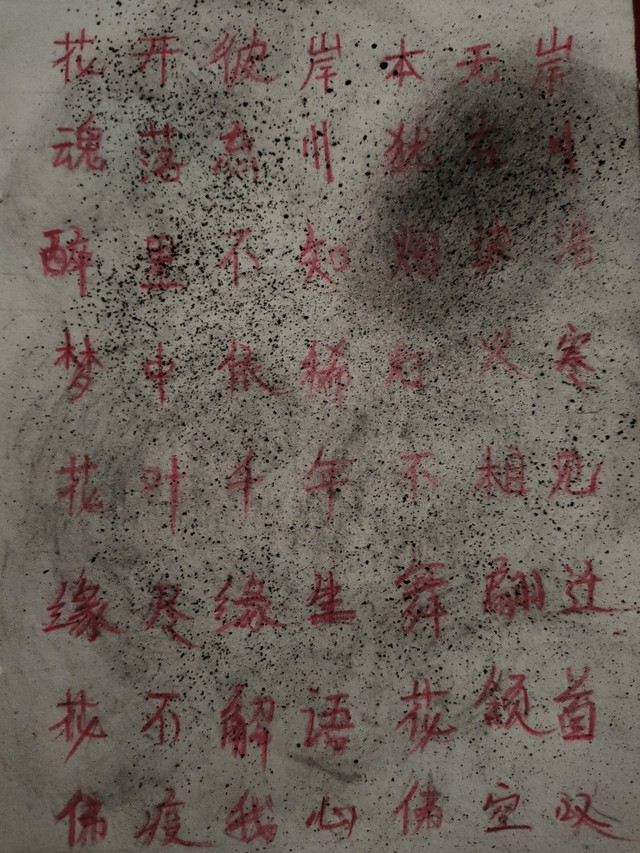 花开彼岸本无岸
魂落忘川犹在川
醉里不知烟
梦中依稀灯火寒
花叶千年不相见
缘尽缘生舞翩迁
花不解语花颔首
佛 我心佛空叹